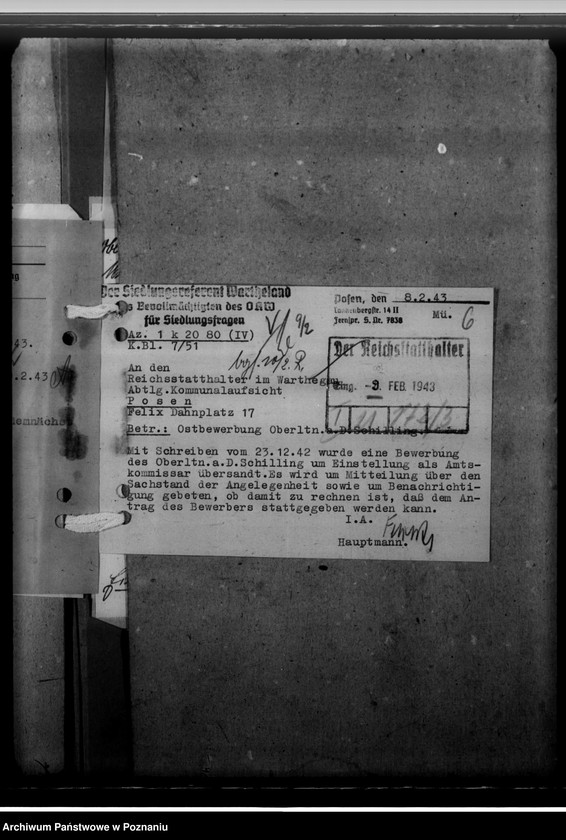 Der Siedlungsreferent Wartheland
s Bevollmächtigten des OKW
für Siedlungsfragen
Az. 1 k 20 80 (IV)
K.Bl. 7/51
Posen, den 8.2.43
14 II
Fernspr. S. Nr. 7838
Mü.
6
9/2
Der Reichsstatthalter
Eing. -9. FEB. 1943
An den
Reichsstatthalter im Warthegau
Abtlg.Kommunalaufsicht
Posen
Felix Dahnplatz 17
Betr.: Ostbewerbung Oberltn.a.D.Schilling.
Mit Schreiben vom 23.12.42 wurde eine Bewerbung
des Oberltn.a.D.Schilling um Einstellung als Amts-
kommissar übersandt.Es wird um Mitteilung über den
Sachstand der Angelegenheit sowie um Benachrichti-
gung gebeten, ob damit zu rechnen ist, daß dem An-
trag des Bewerbers stattgegeben werden kann.
I.A.
Hauptmann.
43.
.2.43
Archiwum Państwowe w Poznaniu